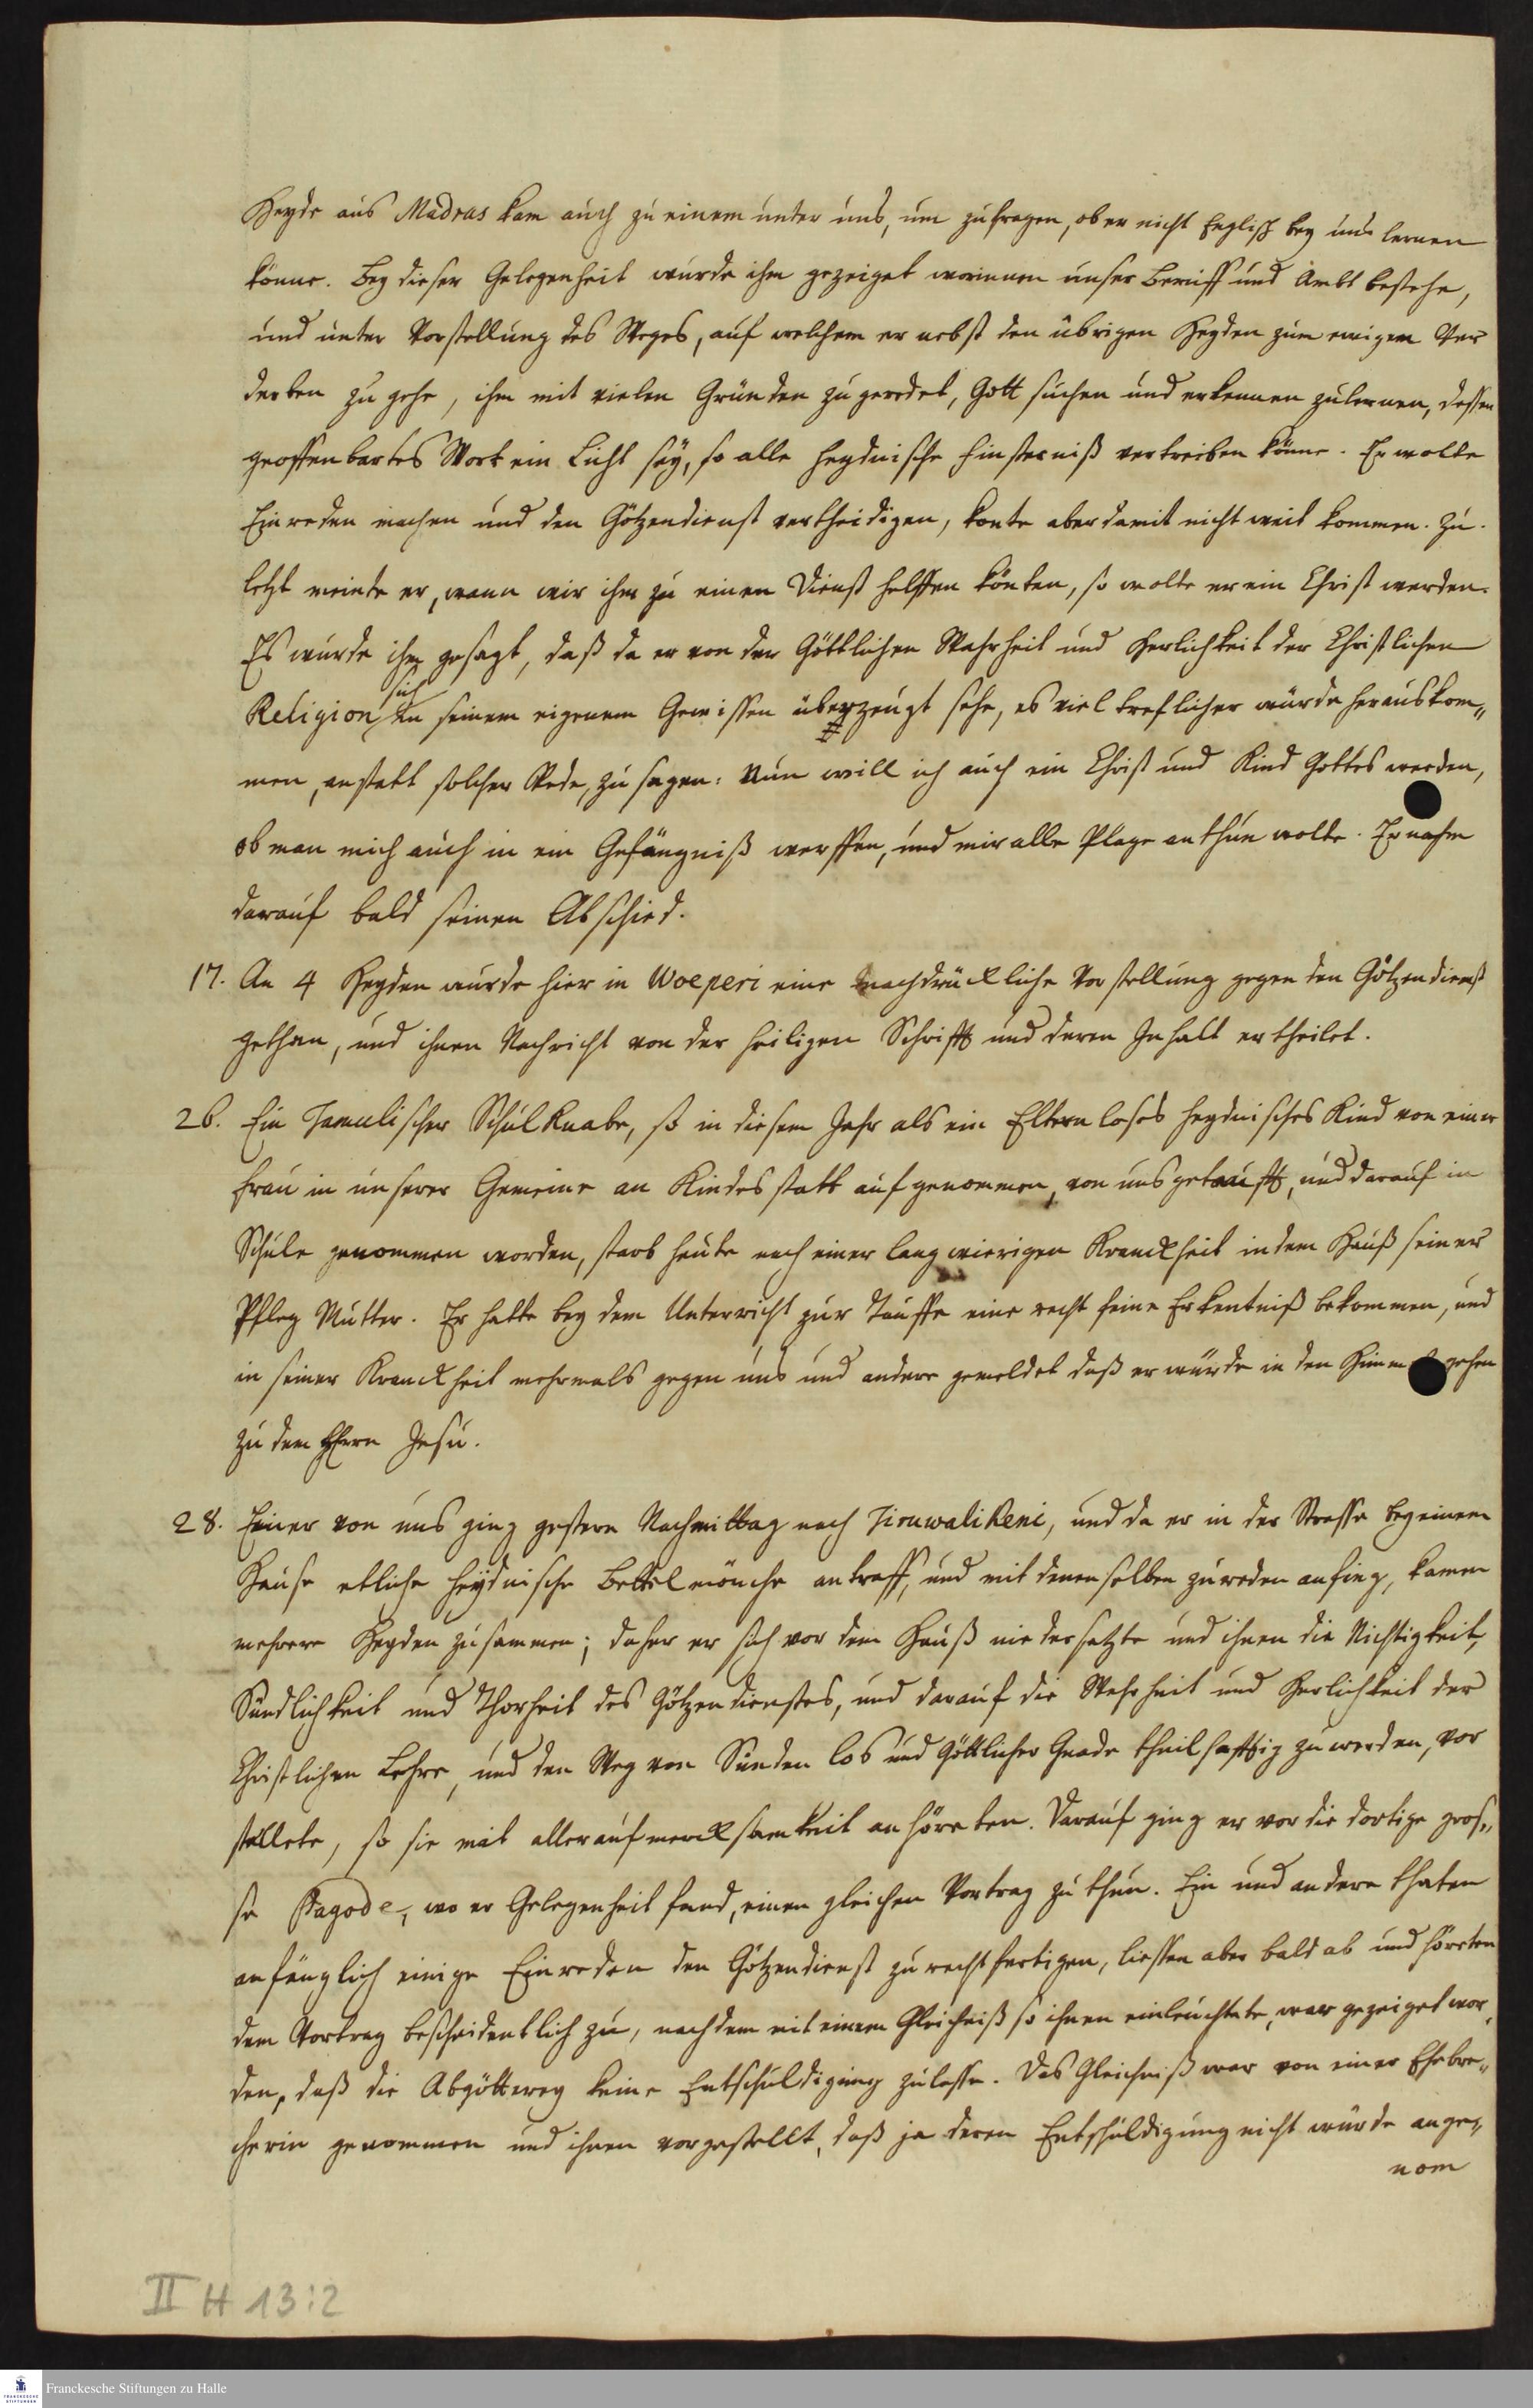 Heyde aus Madras kam auch zu einem unter uns, um zufragen, ob er nicht Englisch bey uns lernen
könne. Bey dieser Gelegenheit wurde ihm gezeiget worinnen unser Beruff und Ambt bestehe,
und unter Vorstellung des Weges, auf welchem er nebst den übrigen Heyden zum ewigen Ver
derben zu gehe, ihm mit vielen Gründen zu geredet, Gott suchen und erkennen zulernen, dessen
geoffenbartes Wort ein Licht sey, so alle heydnische Finsterniß vertreiben könne. Er wolte
Einreden machen und den Götzendienst vertheidigen, konte aber damit nicht weit kommen. Zu-
letzt meinte er, wann wir ihm zu einen Dienst helffen könten, so wolte er ein Christ werden.
Es wurde ihm gesagt, daß da er von der Göttlichen Wahrheit und Herlichkeit der Christlichen
Religion sich in seinem eigenem Gewissen überzeugt sehe, es viel treflicher würde herauskom„
men, anstatt solcher Rede, zu sagen: Nun will ich auch ein Christ und Kind Gottes werden,
ob man mich auch in ein Gefängniß werffen, und mir alle Plage anthun wolte. Er nahm
darauf bald seinen Abschied.
17. An 4 Heyden wurde hier in Woeperi eine nachdrückliche Vorstellung gegen den Götzendienst
gethan, und ihnen Nachricht von der heiligen Schrifft und deren Inhalt ertheilet.
26. Ein Tamulischer Schul Knabe, so in diesem Jahr als ein Eltern loses heydnisches Kind von einer
Frau in unserer Gemeine an Kindes statt aufgenommen, von uns getaufft, und darauf in
Schule genommen worden, starb heute nach einer langwierigen Kranckheit in dem Hauß seiner
Pfleg Mutter. Er hatte bey dem Unterricht zur Tauffe eine recht feine Erkentniß bekommen, und
in seiner Kranckheit mehrmals gegen uns und andere gemeldet daß er würde in den Himmel gehen
zu dem HErrn Jesu.
28. Einer von uns ging gestern Nachmittag nach Tiruwalikeni, und da er in der Strasse bey einem
Hause etliche heydnische Bettelmönche antraff, und mit denenselben zureden anfing, kamen
mehrere Heyden zusammen; daher er sich vor dem Hauß niedersetzte und ihnen die Nichtigkeit,
Sündlichkeit und Thorheit des Götzendienstes, und darauf die Wahrheit und Herlichkeit der
Christlichen Lehre, und den Weg von Sünden los und Göttlicher Gnade theilhafftig zu werden, vor
stellete, so sie mit aller aufmercksamkeit anhöreten. Darauf ging er vor die dortige gros„
se Pagode, wo er Gelegenheit fand, einen gleichen Vortrag zu thun. Ein und andere thaten
anfänglich einige Einreden den Götzendienst zu rechtfertigen, liessen aber bald ab und höreten
dem Vortrag bescheidentlich zu, nachdem mit einem Gleichniß so ihnen einleuchtete, war gezeiget wor„
den, daß die Abgötterey keine Entschuldigung zulasse. Das Gleichniß war von einer Ehebre„
cherin genommen und ihnen vorgestellt, daß ja deren Entschuldigung nicht würde ange„
nom
II H 13:2
Franckesche Stiftungen zu Halle